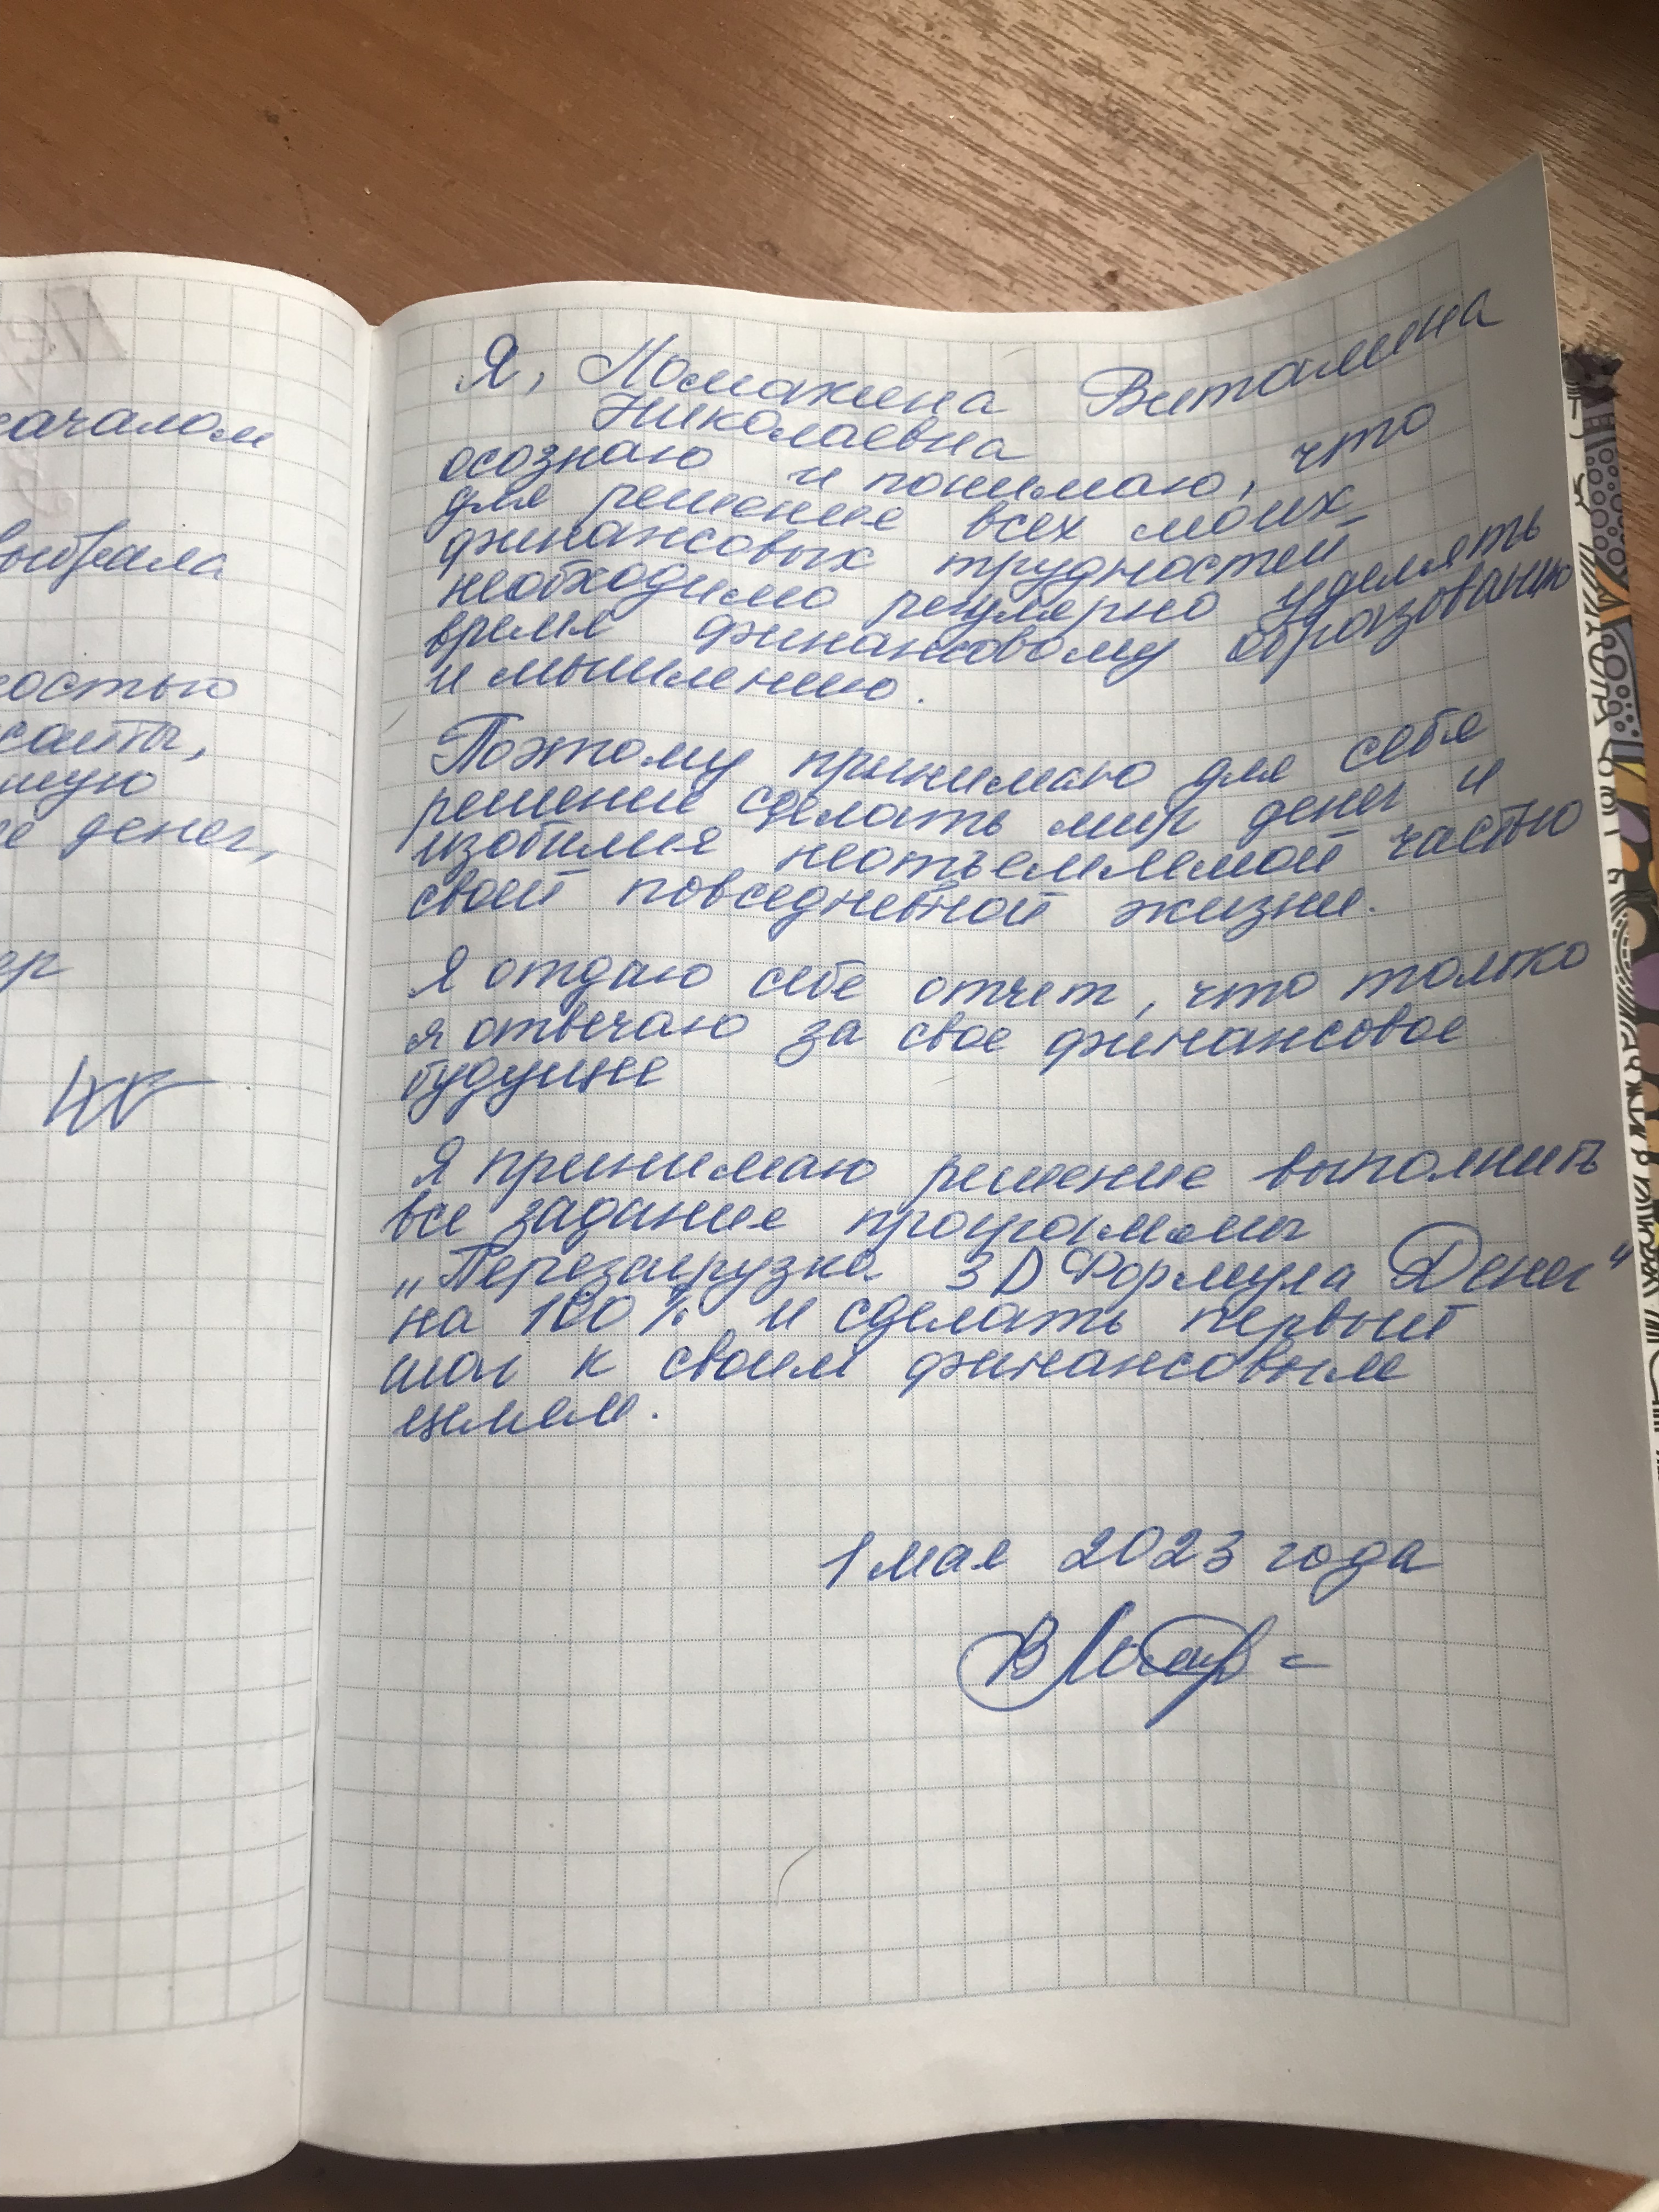 началом
выбрала
ностью
сайты,
шую
е денег,
ер
Я, Ломакина Виталина
Николаевна
осознаю и понимаю, что
для решение всех моих
финансовых трудностей
необходимо регулярно уделять
время финансовому образованию
и мышлению.
Поэтому принимаю для себя
решение сделать мир денег и
изобилия неотъемлемой частью
своей повседневной жизни.
Я отдаю себе отчет, что только
я отвечаю за свое финансовое
будущее
Я принимаю решение выполнить
все задание программы
„Перезагрузка 3D Формула Денег"
на 100% и сделать первый
шаг к своим финансовым
целям.
1 мая 2023 года